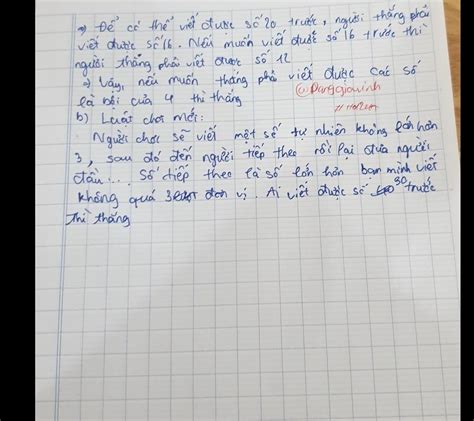 => Để có thể viết được số 20 trước, người thắng phải
viết được số 16. Nếu muốn viết được số 16 trước thì
người thắng phải viết được số 12
=> Vậy, nếu muốn thắng phải viết được các số
là bội của 4 thì thắng
b) Luật chơi mới:
Người chơi sẽ viết một số tự nhiên không lớn hơn
3, sau đó đến người tiếp theo rồi lại đưa người
đầu... Số tiếp theo là số lớn hơn bạn mình viết
không quá 3 đơn vị. Ai viết được số 30 trước
thì thắng